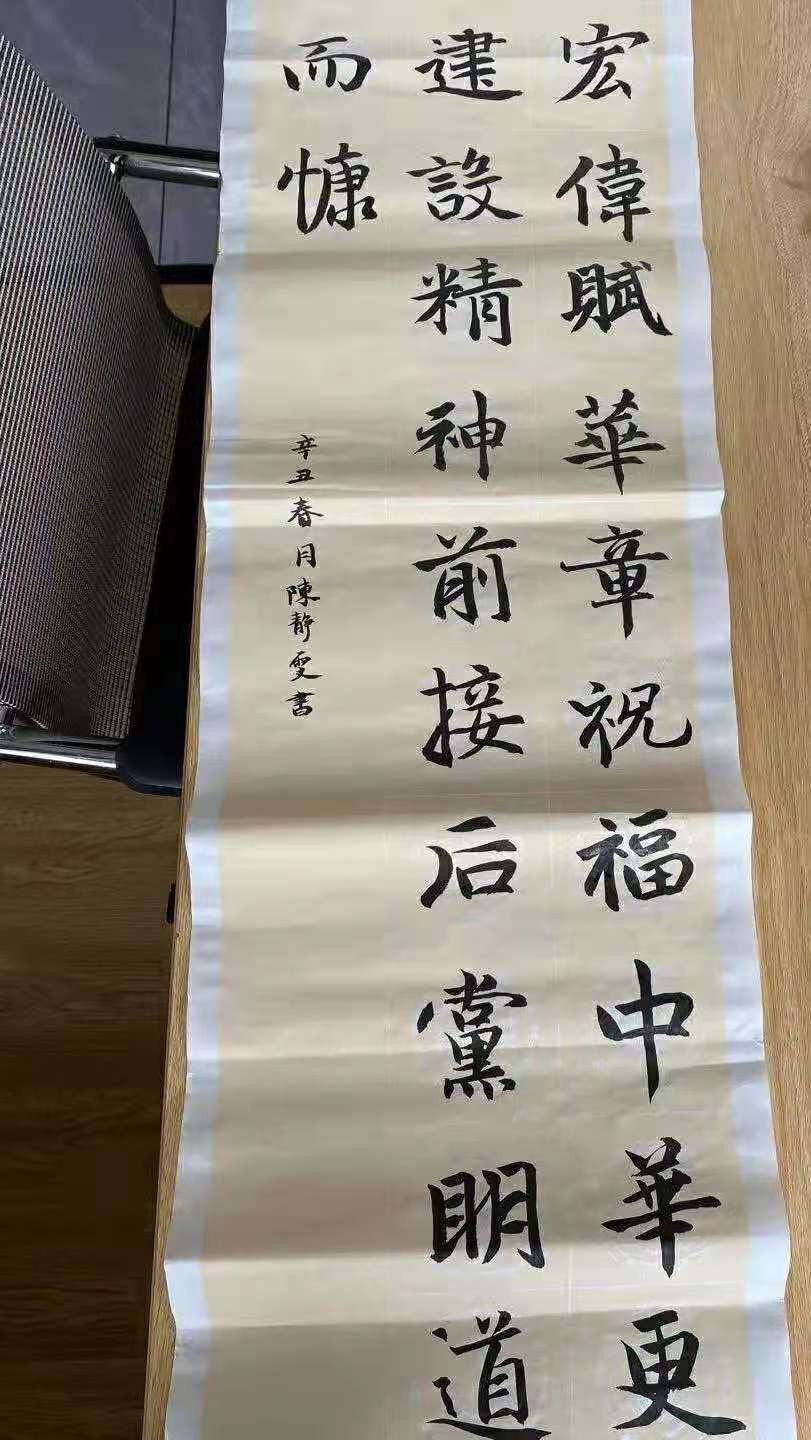 宏偉賦華章祝福中華更
建設精神前接后黨明道
而慷
辛丑春月陳静雯書